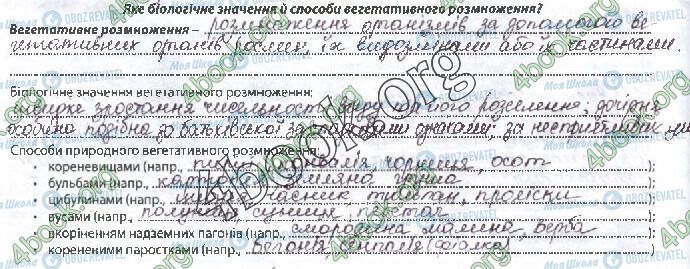 Яке біологічне значення й способи вегетативного розмноження?
Вегетативне розмноження – розмноження організмів за допомогою ве
гетативних органів рослин, їх видозмінами або їх частинами.
Біологічне значення вегетативного розмноження:
швидке зростання чисельності виду та його розселення; дочірня
особина подібна до батьківської за спадковими ознаками; за несприятливих
Способи природного вегетативного розмноження:
• кореневищами (напр., пирій, конвалія, чорниця, осот );
• бульбами (напр., картопля, земляна груша );
• цибулинами (напр., цибуля, часник, тюльпан, проліски );
• вусами (напр., полуниця, суниця );
• вкоріненням надземних пагонів (напр., смородина, малина, верба );
• кореневими паростками (напр., );